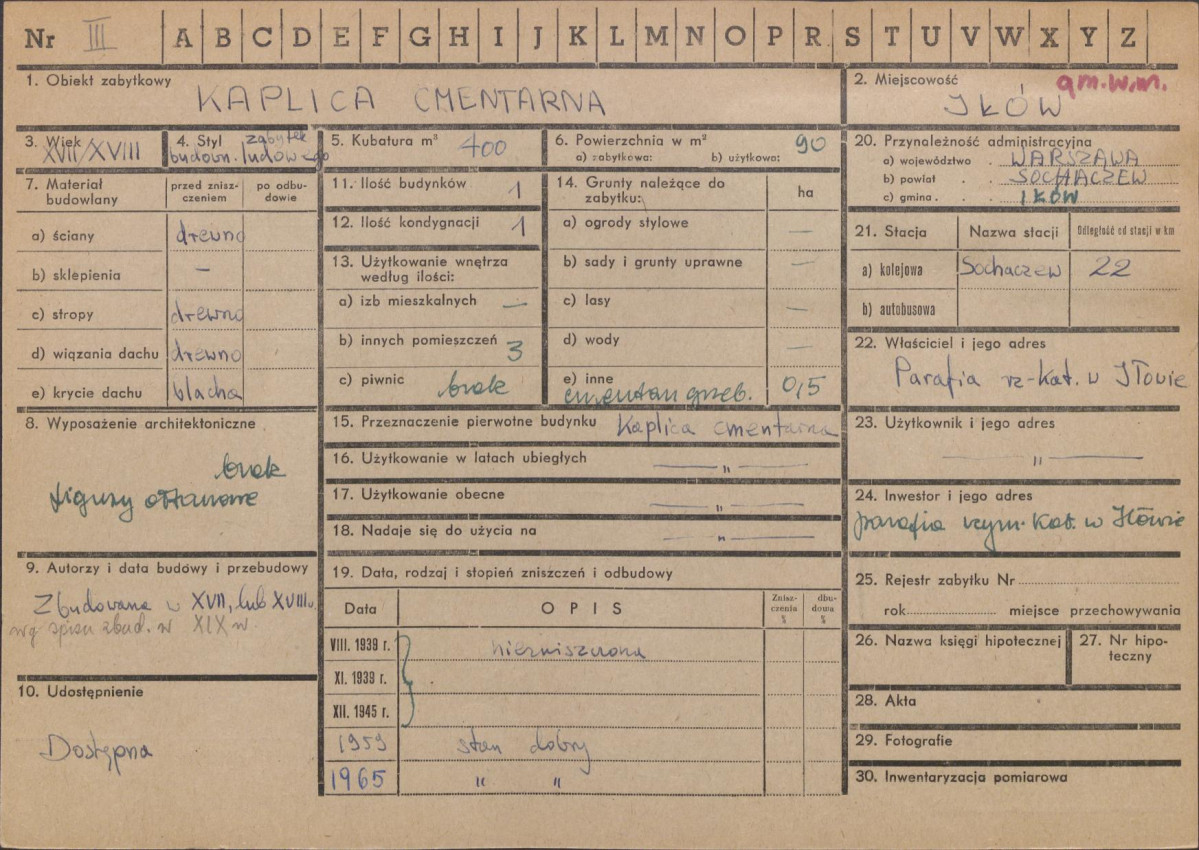 Nr III A B C D E F G H I J K L M N O P R S T U V W X Y Z
1. Obiekt zabytkowy
KAPLICA CMENTARNA
2. Miejscowość
gm.w.m.
IŁÓW
3. Wiek
XVII/XVIII
4. Styl zabytek
budown. ludowego
5. Kubatura m³ 400
6. Powierzchnia w m² 90
a) zabytkowa: b) użytkowa:
7. Materiał budowlany
przed zniszczeniem
po odbudowie
a) ściany drewno
b) sklepienia —
c) stropy drewno
d) wiązania dachu drewno
e) krycie dachu blacha
8. Wyposażenie architektoniczne
brak
figury ołtarzowe
9. Autorzy i data budówy i przebudowy
Zbudowana w XVII, lub XVIII w.
wg spisu zbud. w XIX w.
10. Udostępnienie
Dostępna
11. Ilość budynków 1
12. Ilość kondygnacji 1
13. Użytkowanie wnętrza
według ilości:
a) izb mieszkalnych —
b) innych pomieszczeń 3
c) piwnic brak
14. Grunty należące do
zabytku:
ha
a) ogrody stylowe —
b) sady i grunty uprawne —
c) lasy —
d) wody —
e) inne
cmentarz grzeb. 0,5
15. Przeznaczenie pierwotne budynku Kaplica cmentarna
16. Użytkowanie w latach ubiegłych — " —
17. Użytkowanie obecne — " —
18. Nadaje się do użycia na — " —
19. Data, rodzaj i stopień zniszczeń i odbudowy
Data OPIS Zniszczenia % dbudowa %
VIII. 1939 r. niezniszczona
XI. 1939 r.
XII. 1945 r.
1959 stan dobry
1965 " "
20. Przynależność administracyjna
a) województwo . WARSZAWA
b) powiat . . SOCHACZEW
c) gmina . . IŁÓW
21. Stacja Nazwa stacji Odległość od stacji w km
a) kolejowa Sochaczew 22
b) autobusowa
22. Właściciel i jego adres
Parafia rz-kat. w Iłowie
23. Użytkownik i jego adres
— " —
24. Inwestor i jego adres
parafia rzym. kat. w Iłowie
25. Rejestr zabytku Nr
rok miejsce przechowywania
26. Nazwa księgi hipotecznej
27. Nr hipoteczny
28. Akta
29. Fotografie
30. Inwentaryzacja pomiarowa